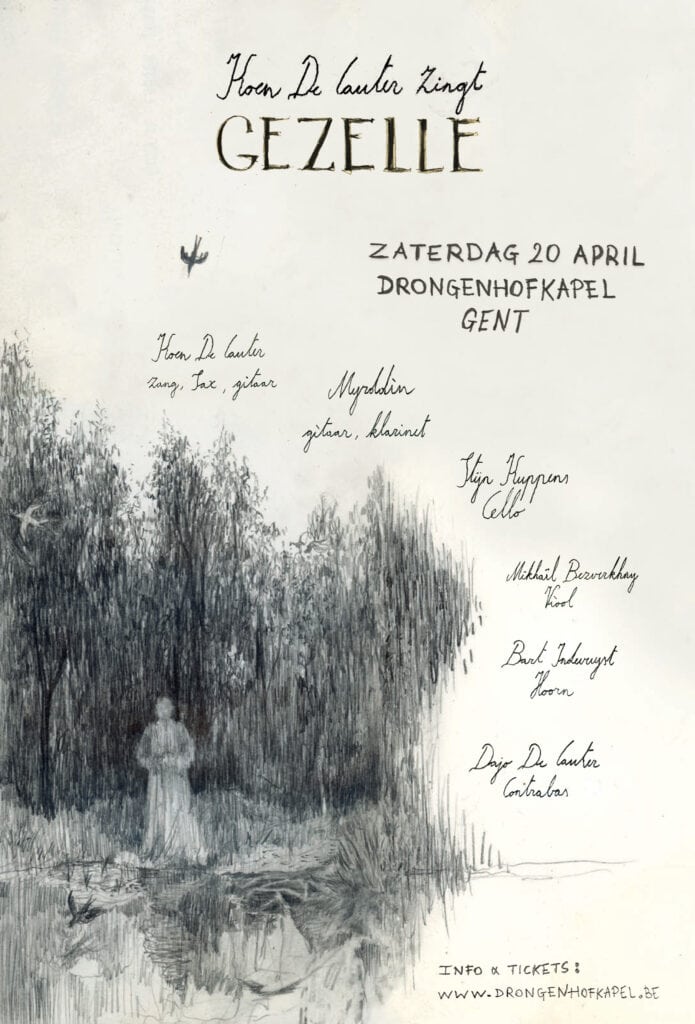 Koen De Cauter Zingt
GEZELLE
ZATERDAG 20 APRIL
DRONGENHOFKAPEL
GENT
Koen De Cauter
zang, Sax, gitaar
Myrddin
gitaar, klarinet
Stijn Kuppens
Cello
Mikhaïl Bezverkhny
Viool
Bart Indevuyst
Hoorn
Dajo De Cauter
Contrabas
INFO & TICKETS:
WWW.DRONGENHOFKAPEL.BE